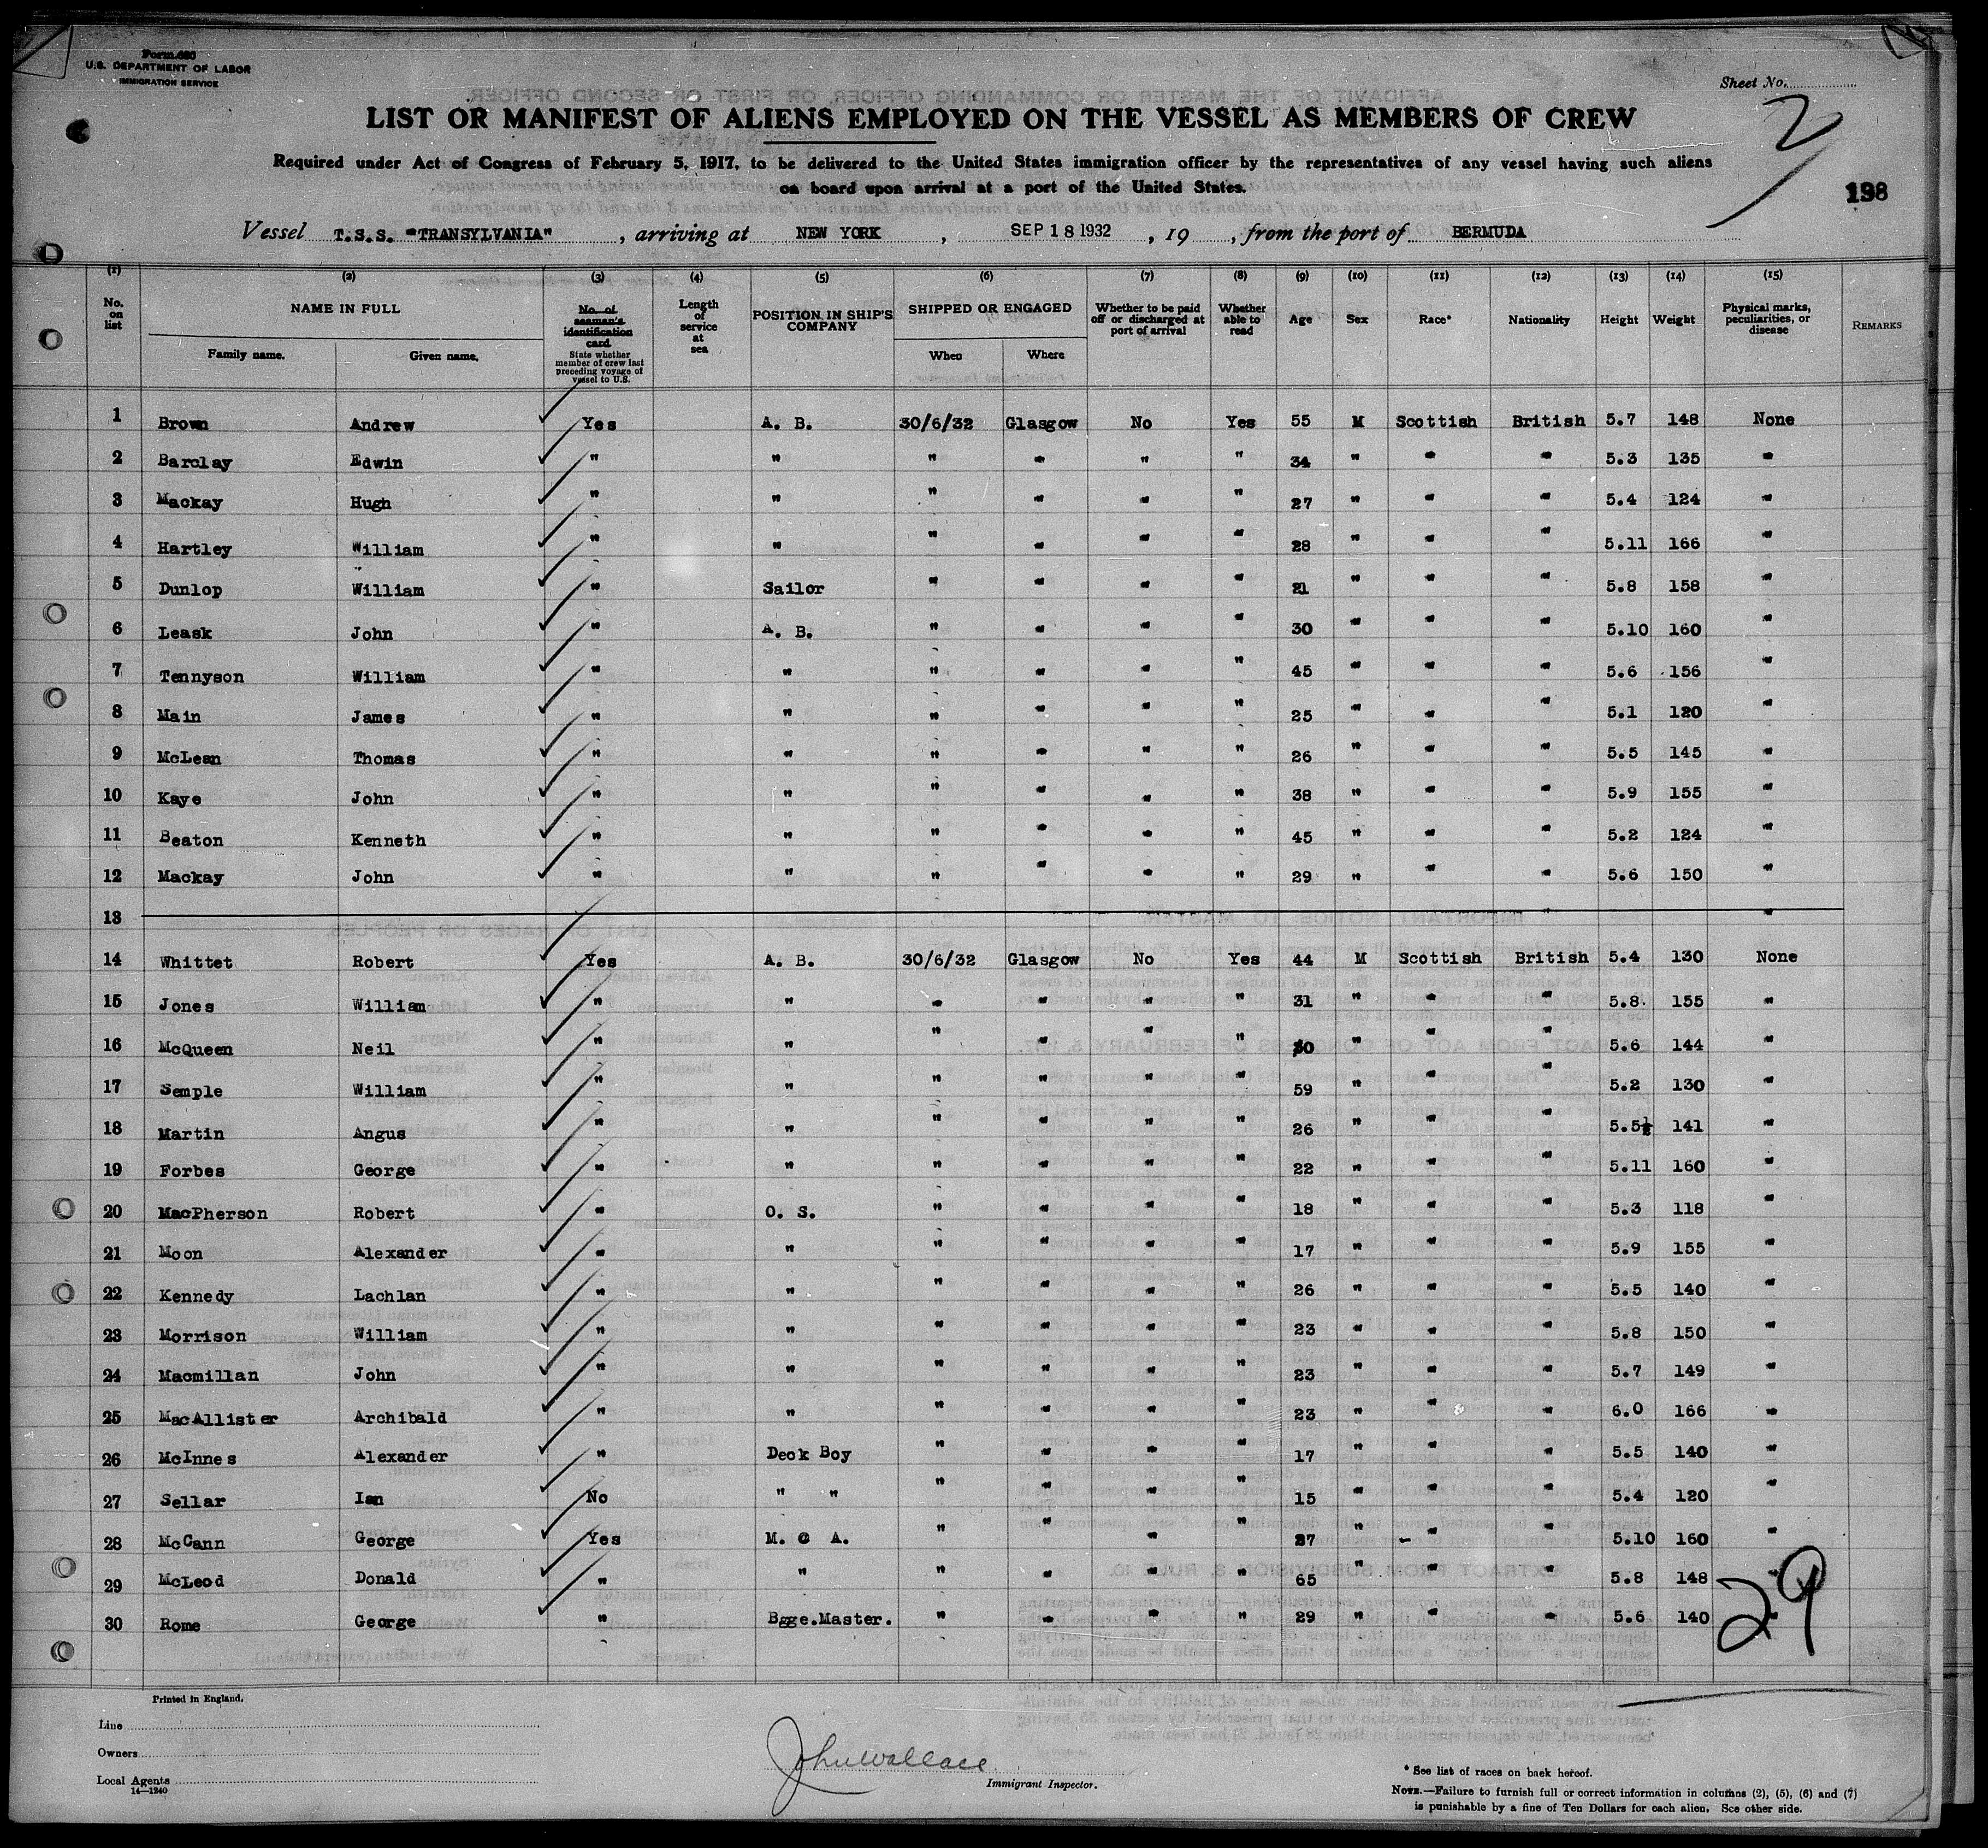 Form 680
U.S. DEPARTMENT OF LABOR
IMMIGRATION SERVICE
Sheet No.
2
LIST OR MANIFEST OF ALIENS EMPLOYED ON THE VESSEL AS MEMBERS OF CREW
Required under Act of Congress of February 5, 1917, to be delivered to the United States immigration officer by the representatives of any vessel having such aliens
on board upon arrival at a port of the United States.
198
Vessel T.S.S. "TRANSYLVANIA", arriving at NEW YORK, SEP 18 1932, 19 , from the port of BERMUDA
(1) (2) (3) (4) (5) (6) (7) (8) (9) (10) (11) (12) (13) (14) (15)
No. on list NAME IN FULL Family name. Given name. No. of seaman's identification card. State whether member of crew last preceding voyage of vessel to U.S. Length of service at sea POSITION IN SHIP'S COMPANY SHIPPED OR ENGAGED When Where Whether to be paid off or discharged at port of arrival Whether able to read Age Sex Race* Nationality Height Weight Physical marks, peculiarities, or disease REMARKS
1 Brown Andrew Yes A. B. 30/6/32 Glasgow No Yes 55 M Scottish British 5.7 148 None
2 Barclay Edwin " " " " " " 34 " " " 5.3 135 "
3 Mackay Hugh " " " " " " 27 " " " 5.4 124 "
4 Hartley William " " " " " " 28 " " " 5.11 166 "
5 Dunlop William " Sailor " " " " 21 " " " 5.8 158 "
6 Leask John " A. B. " " " " 30 " " " 5.10 160 "
7 Tennyson William " " " " " " 45 " " " 5.6 156 "
8 Main James " " " " " " 25 " " " 5.1 120 "
9 McLean Thomas " " " " " " 26 " " " 5.5 145 "
10 Kaye John " " " " " " 38 " " " 5.9 155 "
11 Beaton Kenneth " " " " " " 45 " " " 5.2 124 "
12 Mackay John " " " " " " 29 " " " 5.6 150 "
13 " "
14 Whittet Robert Yes A. B. 30/6/32 Glasgow No Yes 44 M Scottish British 5.4 130 None
15 Jones William " " " " " " 31 " " " 5.8 155 "
16 McQueen Neil " " " " " " 30 " " " 5.6 144 "
17 Semple William " " " " " " 59 " " " 5.2 130 "
18 Martin Angus " " " " " " 26 " " " 5.5½ 141 "
19 Forbes George " " " " " " 22 " " " 5.11 160 "
20 MacPherson Robert " O. S. " " " " 18 " " " 5.3 118 "
21 Moon Alexander " " " " " " 17 " " " 5.9 155 "
22 Kennedy Lachlan " " " " " " 26 " " " 5.5 140 "
23 Morrison William " " " " " " 23 " " " 5.8 150 "
24 Macmillan John " " " " " " 23 " " " 5.7 149 "
25 MacAllister Archibald " " " " " " 23 " " " 6.0 166 "
26 McInnes Alexander " Deck Boy " " " " 17 " " " 5.5 140 "
27 Sellar Ian No " " " " " " 15 " " " 5.4 120 "
28 McCann George Yes M. @ A. " " " " 27 " " " 5.10 160 "
29 McLeod Donald " " " " " " 65 " " " 5.8 148 "
30 Rome George " Bgge.Master. " " " " 29 " " " 5.6 140 "
29
Printed in England.
Line
Owners
Local Agents
14—1240
John Wallace
Immigrant Inspector.
* See list of races on back hereof.
NOTE.—Failure to furnish full or correct information in columns (2), (5), (6) and (7)
is punishable by a fine of Ten Dollars for each alien. See other side.